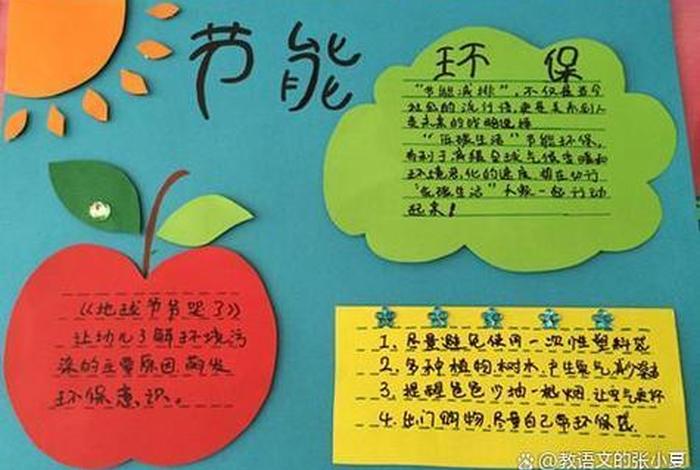 节能
环 保
“节能减排”,不仅是当今
社会的流行语,更是关系到人
类未来的战略选择
“低碳生活”节能环保,
有利于减缓全球气候变暖和
环境恶化的速度,势在必行
“低碳生活”大家一起行动
起来!
《地球爷爷哭了》
让幼儿了解环境污
染的主要原因,萌发
环保意识。
1、尽量避免使用一次性塑料袋
2、多种植物树木,产生氧气,减少
3、提醒爸爸少抽一根烟,让空气更好
4、出门购物,尽量自己带环保袋
@教语文的张小豆